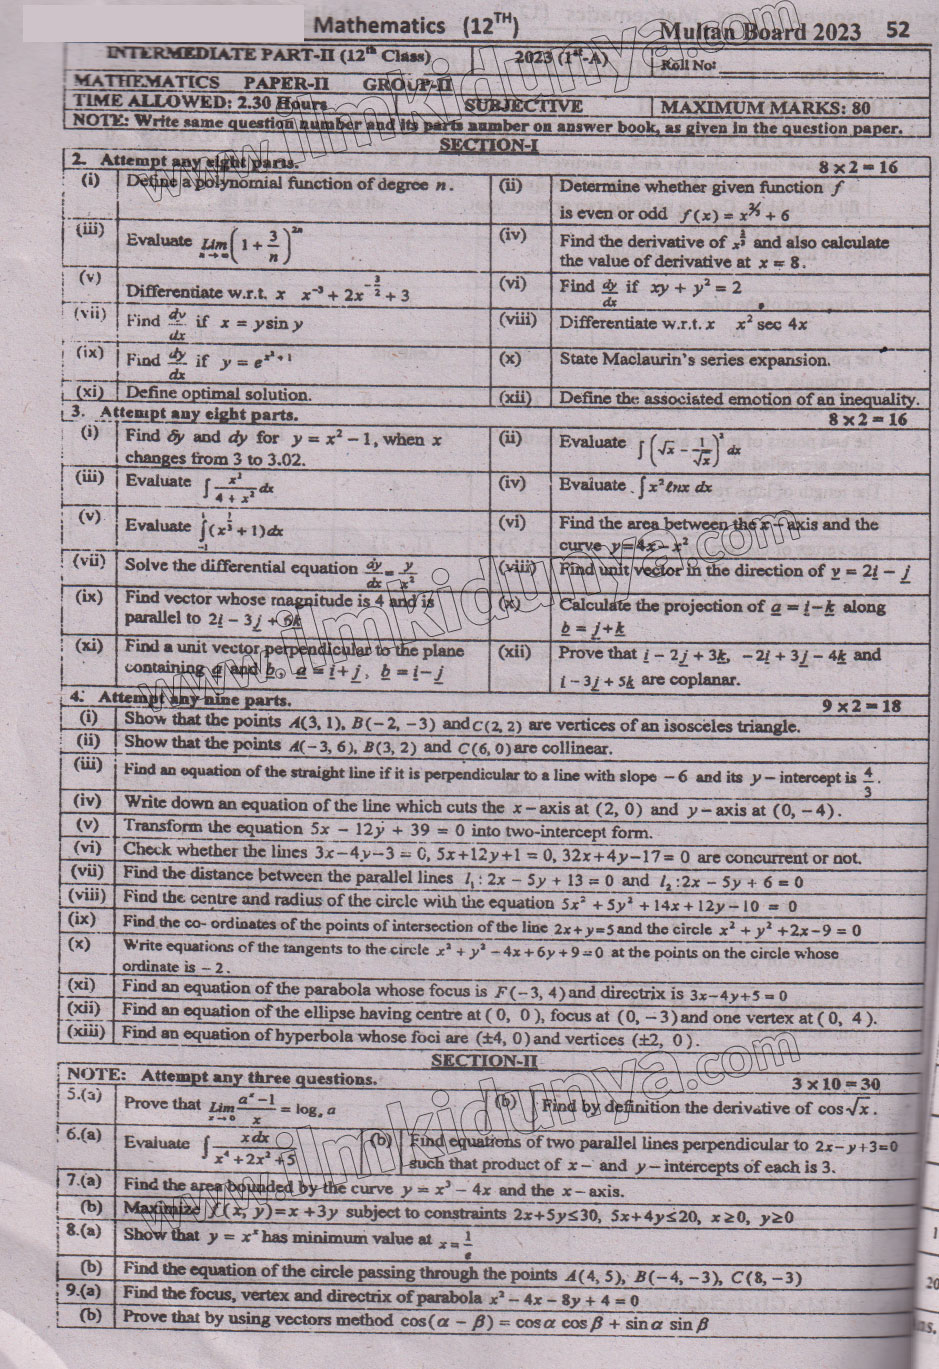 Mathematics (12TH) Multan Board 2023 52
INTERMEDIATE PART-II (12th Class) 2023 (1st-A) Roll No:
MATHEMATICS PAPER-II GROUP-II
TIME ALLOWED: 2.30 Hours SUBJECTIVE MAXIMUM MARKS: 80
NOTE: Write same question number and its parts number on answer book, as given in the question paper.
SECTION-I
2. Attempt any eight parts. 8 × 2 = 16
(i) Define a polynomial function of degree n. (ii) Determine whether given function f
is even or odd f(x) = x^(2/3) + 6
(iii) Evaluate Lim n→∞ (1 + 3/n)^(2n) (iv) Find the derivative of x^(2/3) and also calculate
the value of derivative at x = 8.
(v) Differentiate w.r.t. x x^(-3) + 2x^(-3/2) + 3 (vi) Find dy/dx if xy + y² = 2
(vii) Find dy/dx if x = y sin y (viii) Differentiate w.r.t. x x² sec 4x
(ix) Find dy/dx if y = e^(x²+1) (x) State Maclaurin's series expansion.
(xi) Define optimal solution. (xii) Define the associated emotion of an inequality.
3. Attempt any eight parts. 8 × 2 = 16
(i) Find δy and dy for y = x² – 1, when x (ii) Evaluate ∫(√x – 1/√x)² dx
changes from 3 to 3.02.
(iii) Evaluate ∫ x²/(4 + x²) dx (iv) Evaluate ∫x² ℓnx dx
(v) Evaluate ∫₋₁¹ (x^(1/3) + 1) dx (vi) Find the area between the x – axis and the
curve y = 4x – x²
(vii) Solve the differential equation dy/dx = y/x² (viii) Find unit vector in the direction of v = 2i – j
(ix) Find vector whose magnitude is 4 and is (x) Calculate the projection of a = i – k along
parallel to 2i – 3j + 6k b = j + k
(xi) Find a unit vector perpendicular to the plane (xii) Prove that i – 2j + 3k, –2i + 3j – 4k and
containing a and b. a = i + j, b = i – j i – 3j + 5k are coplanar.
4. Attempt any nine parts. 9 × 2 = 18
(i) Show that the points A(3, 1), B(–2, –3) and C(2, 2) are vertices of an isosceles triangle.
(ii) Show that the points A(–3, 6), B(3, 2) and C(6, 0) are collinear.
(iii) Find an equation of the straight line if it is perpendicular to a line with slope –6 and its y – intercept is 4/3.
(iv) Write down an equation of the line which cuts the x – axis at (2, 0) and y – axis at (0, –4).
(v) Transform the equation 5x – 12y + 39 = 0 into two-intercept form.
(vi) Check whether the lines 3x–4y–3 = 0, 5x+12y+1 = 0, 32x+4y–17= 0 are concurrent or not.
(vii) Find the distance between the parallel lines l₁ : 2x – 5y + 13 = 0 and l₂ : 2x – 5y + 6 = 0
(viii) Find the centre and radius of the circle with the equation 5x² + 5y² + 14x + 12y – 10 = 0
(ix) Find the co- ordinates of the points of intersection of the line 2x+y=5 and the circle x² + y² +2x–9 = 0
(x) Write equations of the tangents to the circle x² + y² – 4x + 6y + 9 = 0 at the points on the circle whose
ordinate is – 2.
(xi) Find an equation of the parabola whose focus is F(–3, 4) and directrix is 3x–4y+5 = 0
(xii) Find an equation of the ellipse having centre at (0, 0), focus at (0, –3) and one vertex at (0, 4).
(xiii) Find an equation of hyperbola whose foci are (±4, 0) and vertices (±2, 0).
SECTION-II
NOTE: Attempt any three questions. 3 × 10 = 30
5.(a) Prove that Lim x→0 (aˣ – 1)/x = logₑ a (b) Find by definition the derivative of cos√x.
6.(a) Evaluate ∫ x dx/(x⁴ + 2x² + 5) (b) Find equations of two parallel lines perpendicular to 2x–y+3=0
such that product of x – and y – intercepts of each is 3.
7.(a) Find the area bounded by the curve y = x³ – 4x and the x – axis.
(b) Maximize f(x, y)=x +3y subject to constraints 2x+5y≤30, 5x+4y≤20, x≥0, y≥0
8.(a) Show that y = xˣ has minimum value at x = 1/e
(b) Find the equation of the circle passing through the points A(4, 5), B(–4, –3), C(8, –3)
9.(a) Find the focus, vertex and directrix of parabola x² – 4x – 8y + 4 = 0
(b) Prove that by using vectors method cos(α – β) = cosα cosβ + sinα sinβ
www.ilmkidunya.com
www.ilmkidunya.com
www.ilmkidunya.com